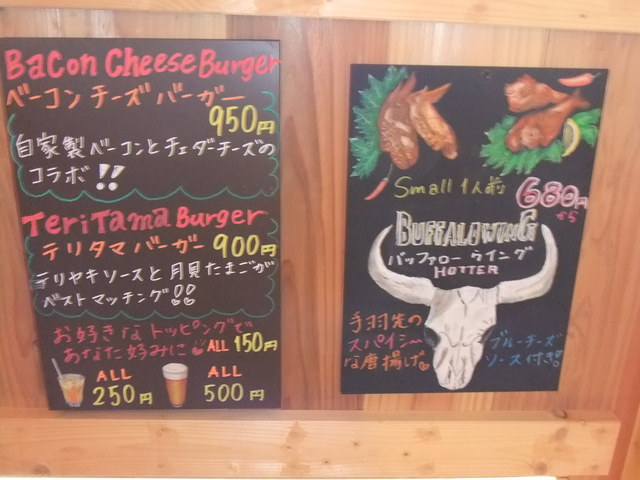 Bacon Cheese Burger
ベーコンチーズバーガー
950円
自家製ベーコンとチェダチーズの
コラボ!!
TeriTama Burger
テリタマバーガー 900円
テリヤキソースと月見たまごが
ベストマッチング!!
お好きなトッピングで
あなた好みに ALL 150円
ALL
250円
ALL
500円
Small 1人前 680円
から
BUFFALOWING
バッファローウイング
HOTTER
手羽先の
スパイシー
な唐揚げ
ブルーチーズ
ソース付き!